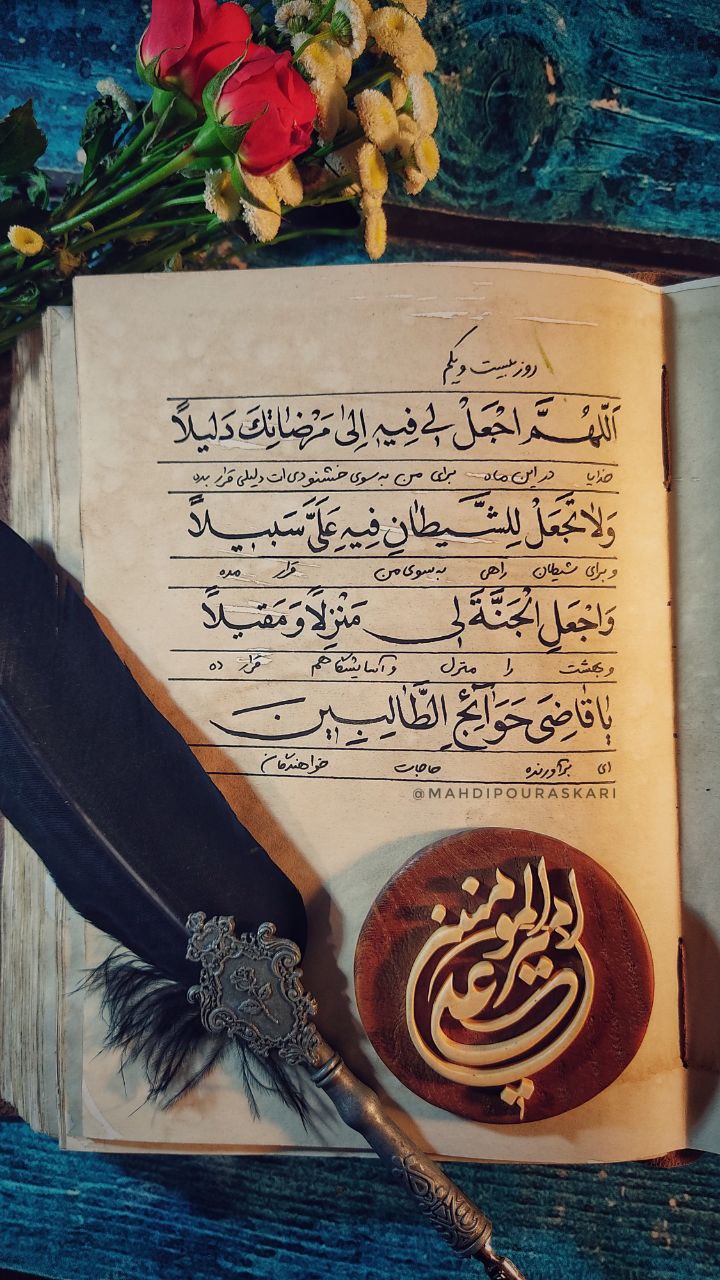 روز بیست و یکم
اَللّهُمَّ اجْعَلْ لى فِیهِ اِلىٰ مَرْضٰاتِكَ دَلیلاً
خدایا در این ماه برای من به سوی خشنودی ات دلیلی قرار بده
وَلاٰتَجْعَلْ لِلشَّیطٰانِ فِیهِ عَلَىَّ سَبیلاً
و برای شیطان راهی به سوی من قرار مده
وَاجْعَلِ الْجَنَّةَ لى مَنْزِلاً وَمَقیلاً
و بهشت را منزل و آسایشگاهم قرار ده
یٰا قٰاضِیَ حَوٰائِجِ الطّٰالِبینَ
ای برآورنده حاجات خواهندگان
@MAHDIPOURASKARI
امیرالمومنین
علی